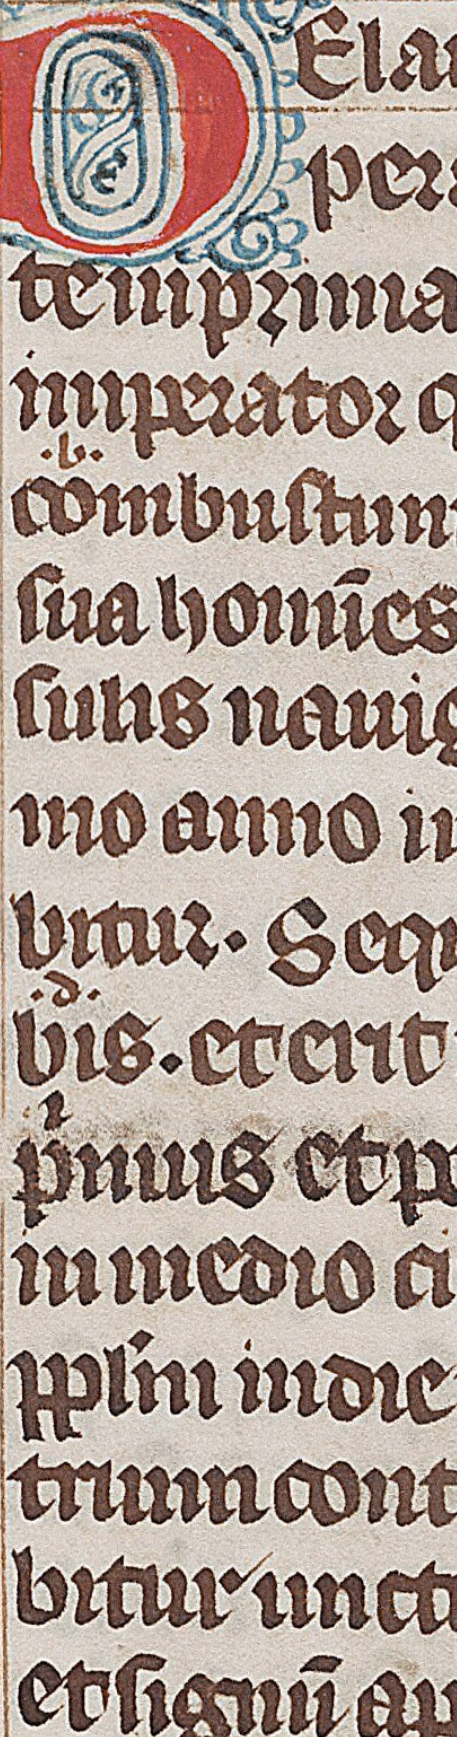 DElau
per
temprima
imperator q
.b.
combustum
sua homīes
sulis nauig
mo anno in
bitur. Sequ
.d.
bis. et erit
p̄miis et po
in medio ci
pplm in die
trium cont
bitur uncti
et signū ap